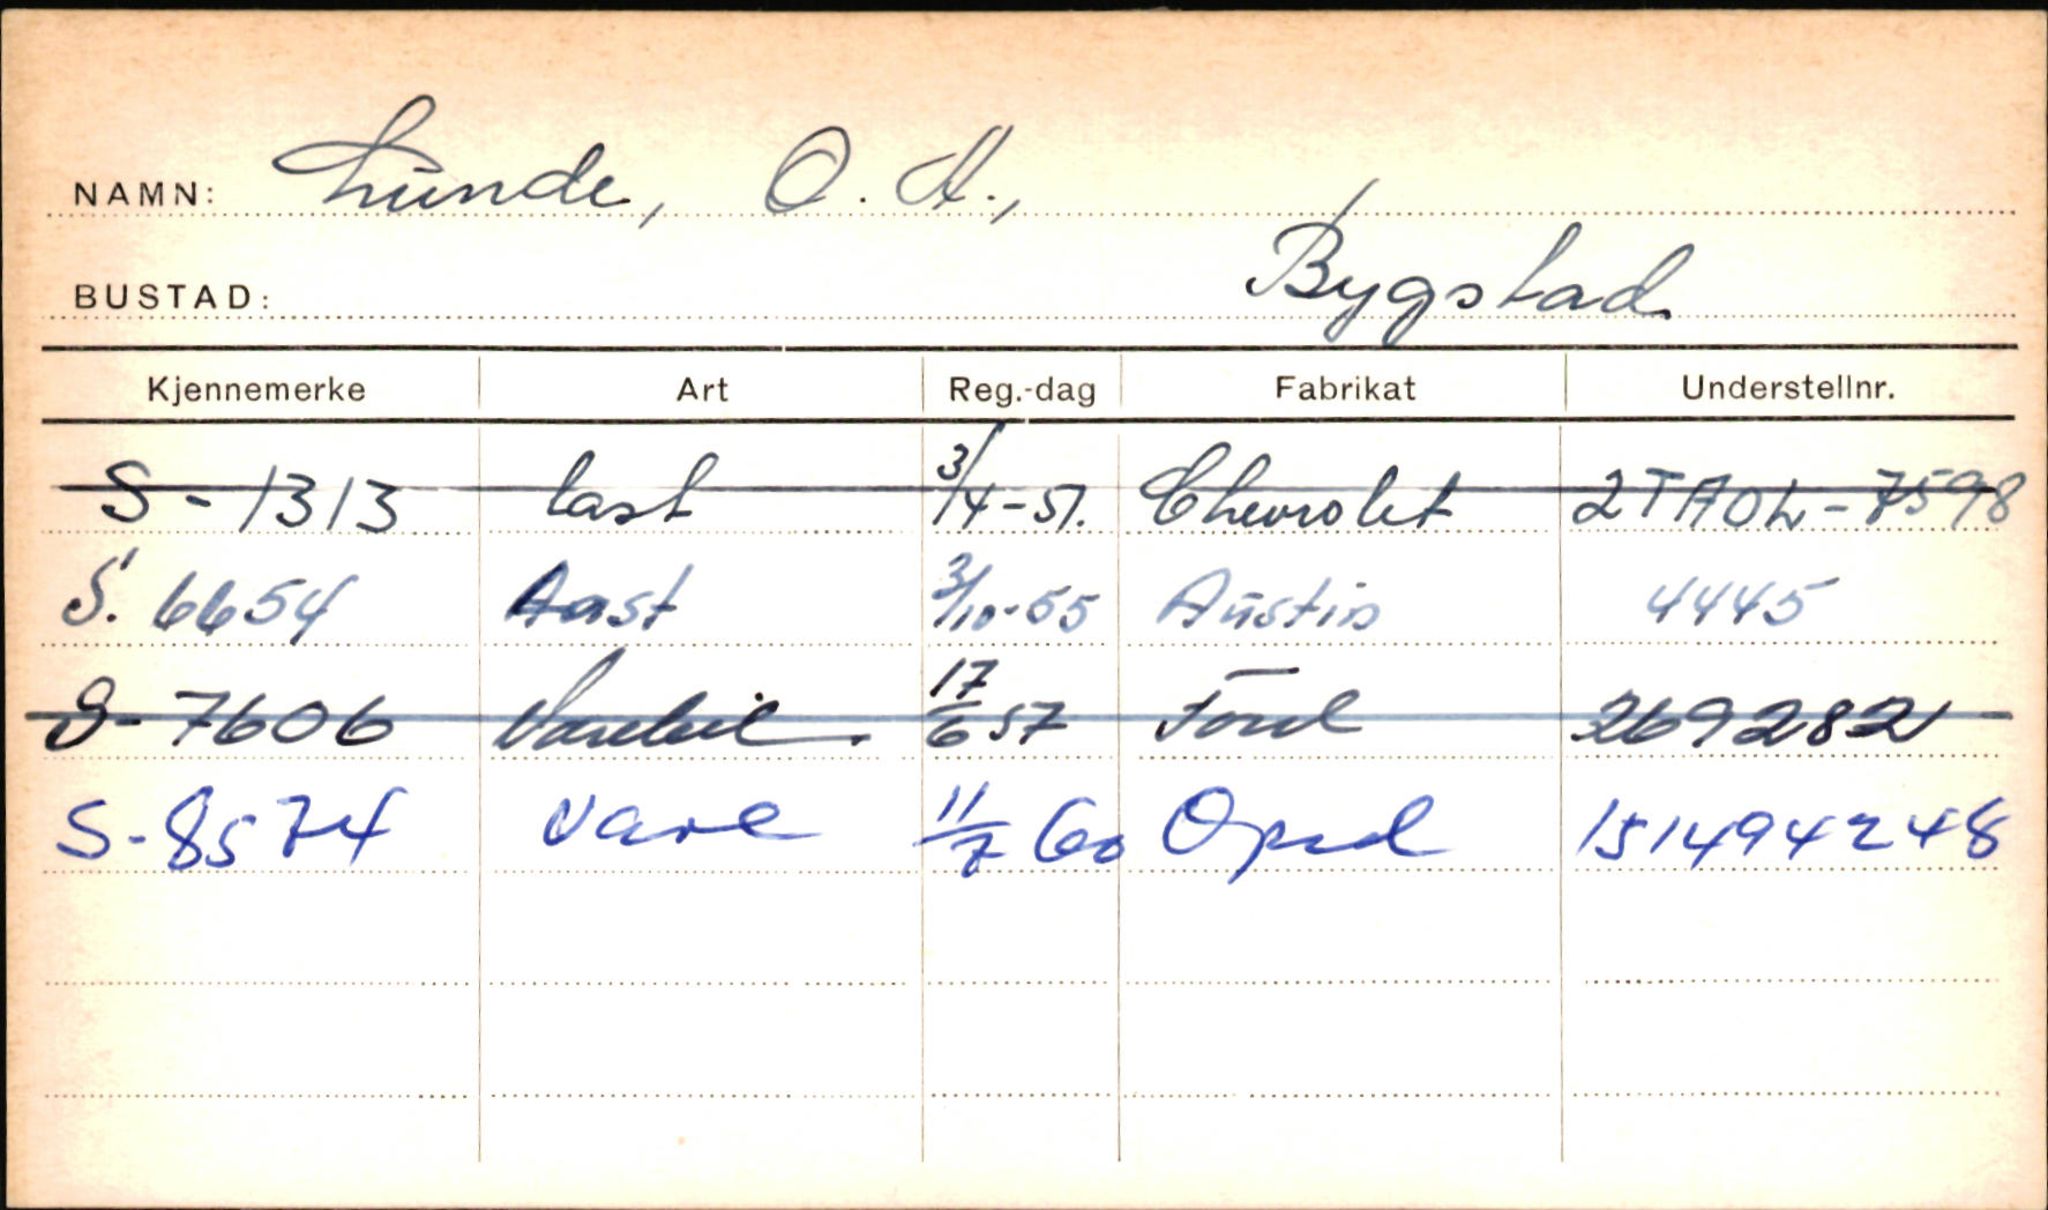 NAMN: Lunde, O. A.,
BUSTAD: Bygstad
Kjennemerke Art Reg.-dag Fabrikat Understellnr.
S - 1313 last 3/4-51. Chevrolet 2TAOL-7598
S. 6654 Last 3/10-55 Austin 4445
S- 7606 Varebil. 17/6 57 Ford 269282
S-8574 Vare 11/7 60 Opel 151494248